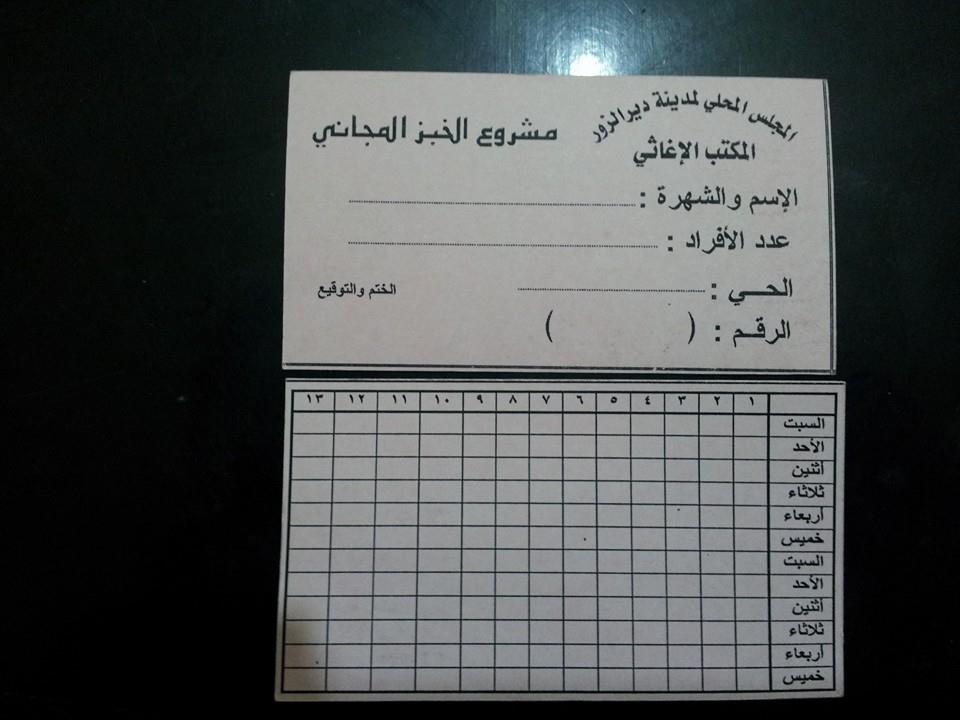 المجلس المحلي لمدينة ديرالزور
المكتب الإغاثي
مشروع الخبز المجاني
الإسم والشهرة :
عدد الأفراد :
الحـــي :
الختم والتوقيع
الرقــم : ( )
١ ٢ ٣ ٤ ٥ ٦ ٧ ٨ ٩ ١٠ ١١ ١٢ ١٣
السبت
الأحد
أثنين
ثلاثاء
أربعاء
خميس
السبت
الأحد
أثنين
ثلاثاء
أربعاء
خميس